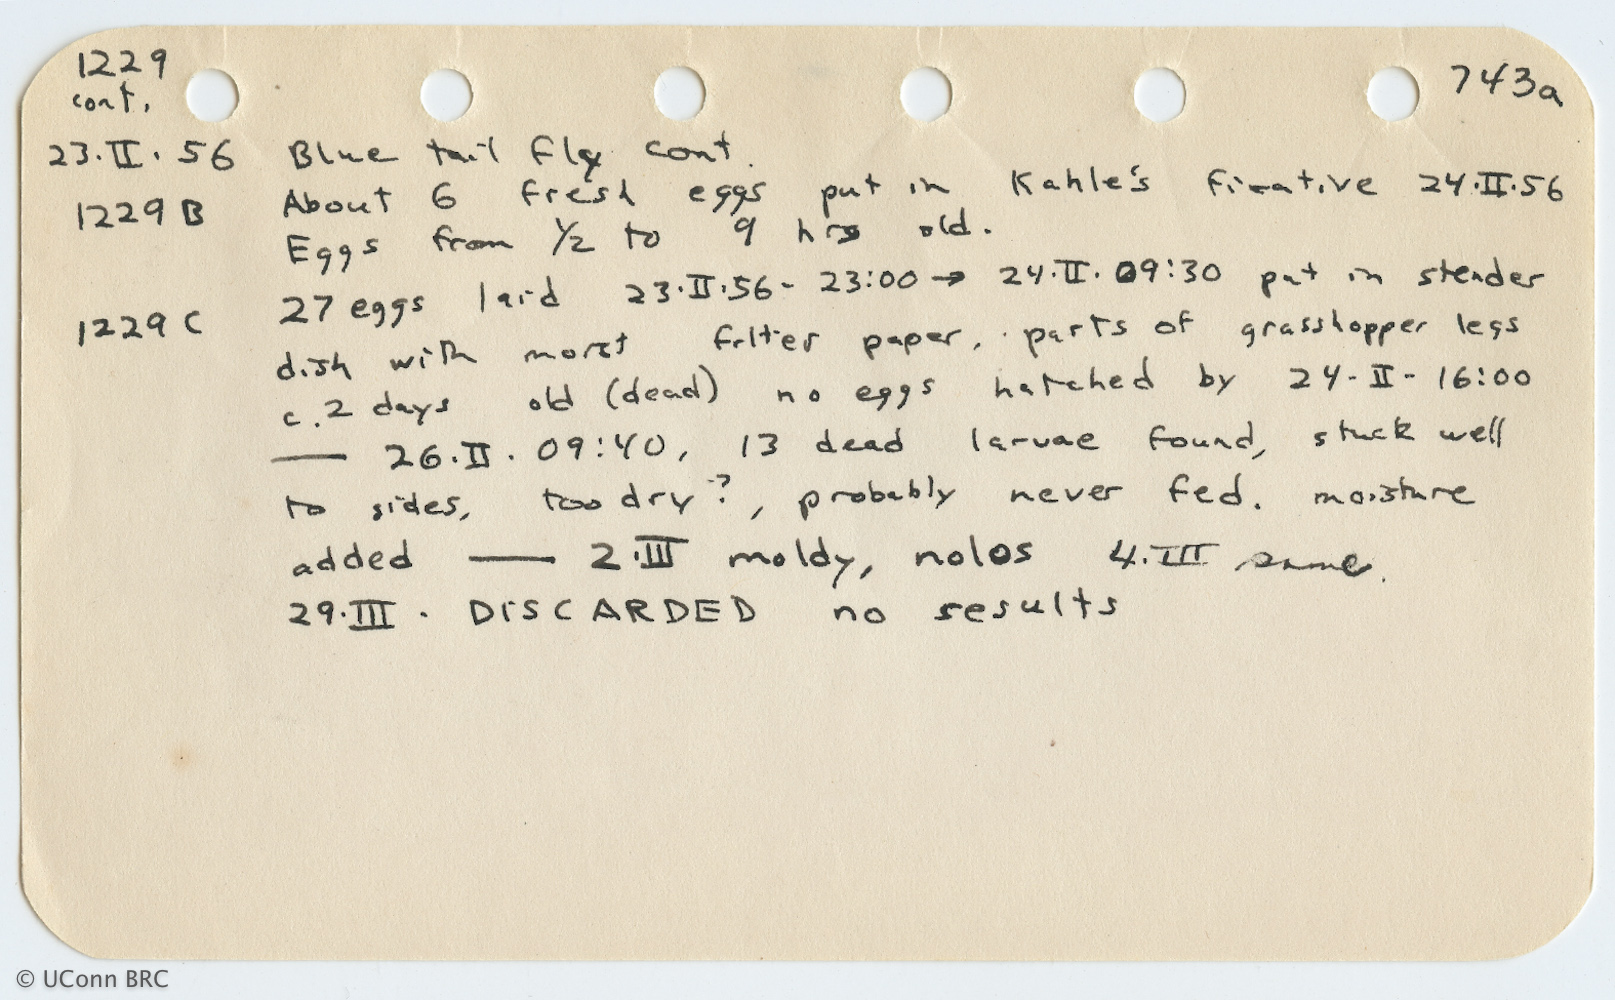 1229 cont. 743a
23.II.56 Blue tail fly cont.
1229 B About 6 fresh eggs put in Kahle's fixative 24.II.56
Eggs from 1/2 to 9 hrs old.
1229 C 27 eggs laid 23.II.56- 23:00 → 24.II. 09:30 put in stender
dish with moist filter paper, parts of grasshopper legs
c. 2 days old (dead) no eggs hatched by 24-II-16:00
— 26.II. 09:40, 13 dead larvae found, stuck well
to sides, too dry?, probably never fed. moisture
added — 2.III moldy, no los 4.III same.
29.III. DISCARDED no results
© UConn BRC